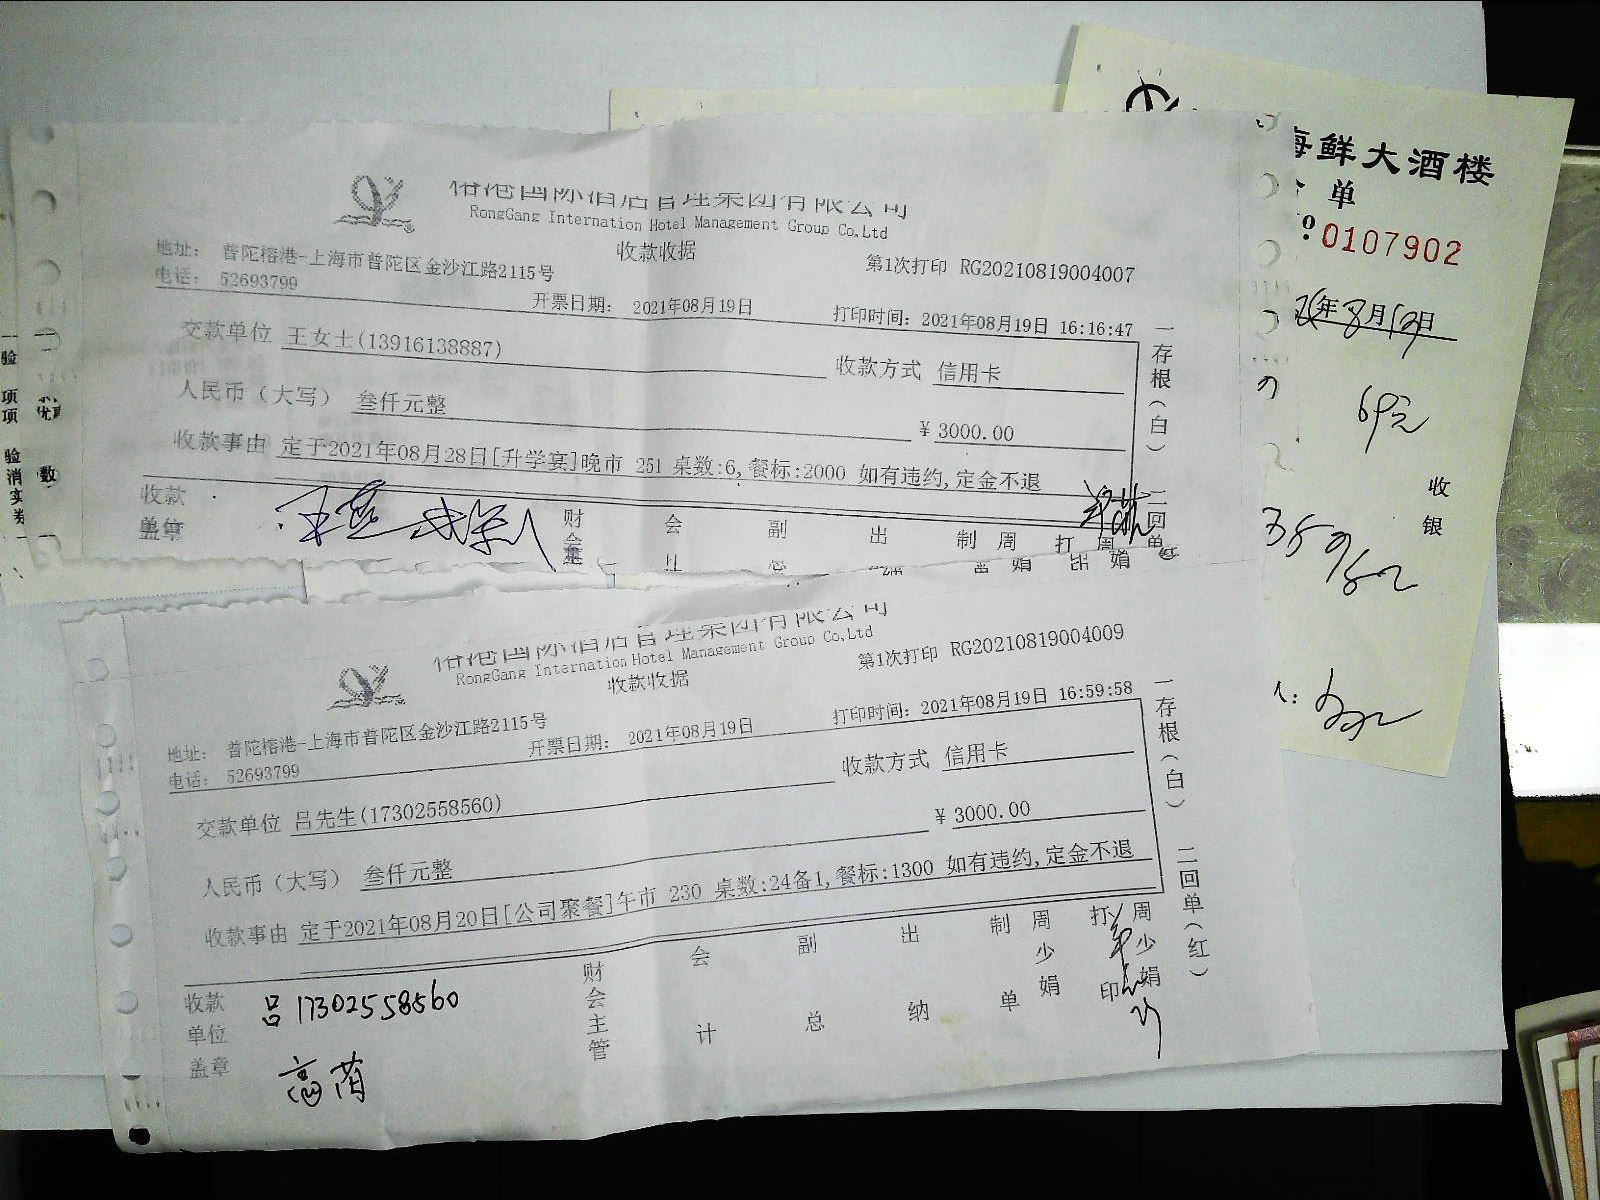 海鲜大酒楼
单
0107902
年8月19日
69元
收
银
国际酒店管理集团有限公司
RongGang Internation Hotel Management Group Co.Ltd
收款收据
地址： 普陀榕港-上海市普陀区金沙江路2115号
第1次打印 RG20210819004007
电话： 52693799
开票日期： 2021年08月19日
打印时间：2021年08月19日 16:16:47
交款单位 王女士(13916138887)
收款方式 信用卡
人民币（大写） 叁仟元整
¥ 3000.00
收款事由 定于2021年08月28日[升学宴]晚市 251 桌数:6,餐标:2000 如有违约,定金不退
一存根（白）
二回单
收款
盖章
财 会 副 出 制 周 打 周
娟 娟
国际酒店管理集团有限公司
RongGang Internation Hotel Management Group Co.Ltd
收款收据
第1次打印 RG20210819004009
地址： 普陀榕港-上海市普陀区金沙江路2115号
电话： 52693799
开票日期： 2021年08月19日
打印时间：2021年08月19日 16:59:58
交款单位 吕先生(17302558560)
收款方式 信用卡
人民币（大写） 叁仟元整
¥ 3000.00
收款事由 定于2021年08月20日[公司聚餐]午市 230 桌数:24备1,餐标:1300 如有违约,定金不退
一存根（白） 二回单（红）
收款单位盖章
吕17302558560
财会主管
会计
副总
出纳
制单 周少娟
打印 周少娟
验
项
项
验
消
实
数